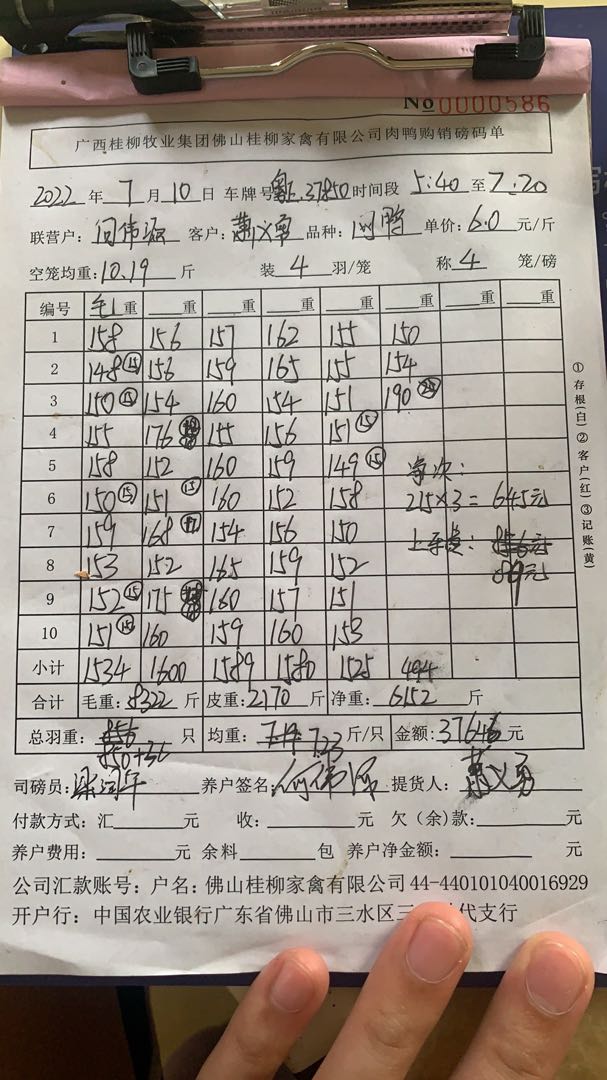 No 0000586
广西桂柳牧业集团佛山桂柳家禽有限公司肉鸭购销磅码单
2022 年 7 月 10 日 车牌号 37850 时间段 5:40 至 7:20
联营户: 何伟 客户: 萧义勇 品种: 鸭 单价: 6.0 元/斤
空笼均重: 10.19 斤 装 4 羽/笼 称 4 笼/磅
编号 毛重 重 重 重 重 重 重 重
1 158 156 157 162 155 150
2 148 ⑮ 156 159 165 155 154
3 150 ⑮ 154 160 154 151 190
4 155 176 155 156 151 ⑮
5 158 152 160 159 149 ⑮ 净次:
6 150 ⑮ 151 ⑮ 160 152 158 215×3=645元
7 159 168 ⑰ 154 156 150
8 153 152 165 159 152 上车费: 856元
89元
9 152 ⑮ 175 160 157 151
10 151 ⑮ 160 159 160 153
小计 1534 1600 1589 1580 1525 494
合计 毛重: 8322 斤 皮重: 2170 斤 净重: 6152 斤
总羽重: 856 只 均重: 7.19 7.23 斤/只 金额: 37646 元
850+36
司磅员: 养户签名: 何伟 提货人: 萧义勇
付款方式: 汇 元 收: 元 欠(余)款: 元
养户费用: 元 余料 包 养户净金额: 元
公司汇款账号: 户名: 佛山桂柳家禽有限公司 44-440101040016929
开户行: 中国农业银行广东省佛山市三水区三 代支行
①存根(白)②客户(红)③记账(黄)